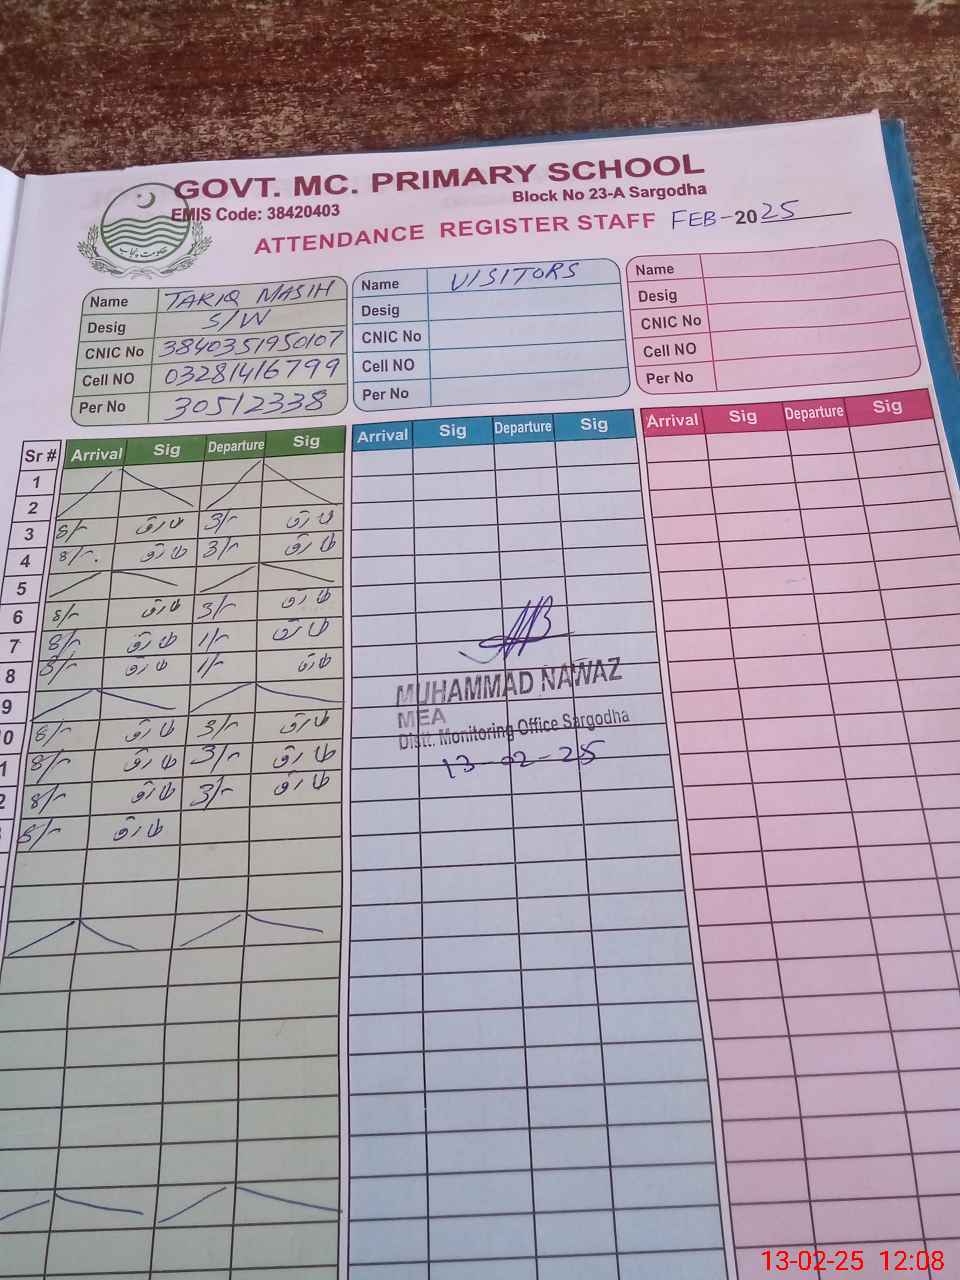 GOVT. MC. PRIMARY SCHOOL
EMIS Code: 38420403
Block No 23-A Sargodha
ATTENDANCE REGISTER STAFF FEB-2025
حکومت پنجاب
Name TARIQ MASIH
Desig S/W
CNIC No 3840351950107
Cell NO 03281416799
Per No 30512338
Name VISITORS
Desig
CNIC No
Cell NO
Per No
Name
Desig
CNIC No
Cell NO
Per No
Sr # Arrival Sig Departure Sig Arrival Sig Departure Sig Arrival Sig Departure Sig
1
2
3 8/- طارق 3/- طارق
4 8/- طارق 3/- طارق
5
6 8/- طارق 3/- طارق
7 8/- طارق 1/- طارق
8 8/- طارق 1/- طارق
9
0 8/- طارق 3/- طارق
1 8/- طارق 3/- طارق
2 8/- طارق 3/- طارق
8/- طارق
MUHAMMAD NAWAZ
MEA
Distt. Monitoring Office Sargodha
13-02-25
13-02-25 12:08